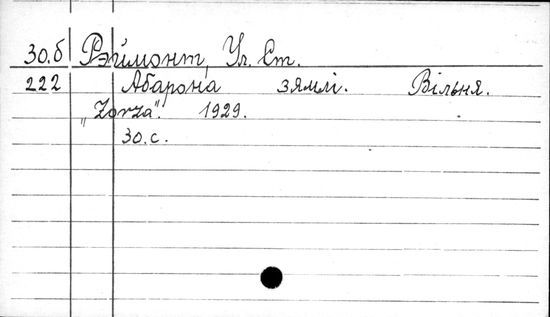 30.б Рэймонт, Ул. Ст.
222 Абарона зямлі. Вільня.
„Zorza". 1929.
30.с.